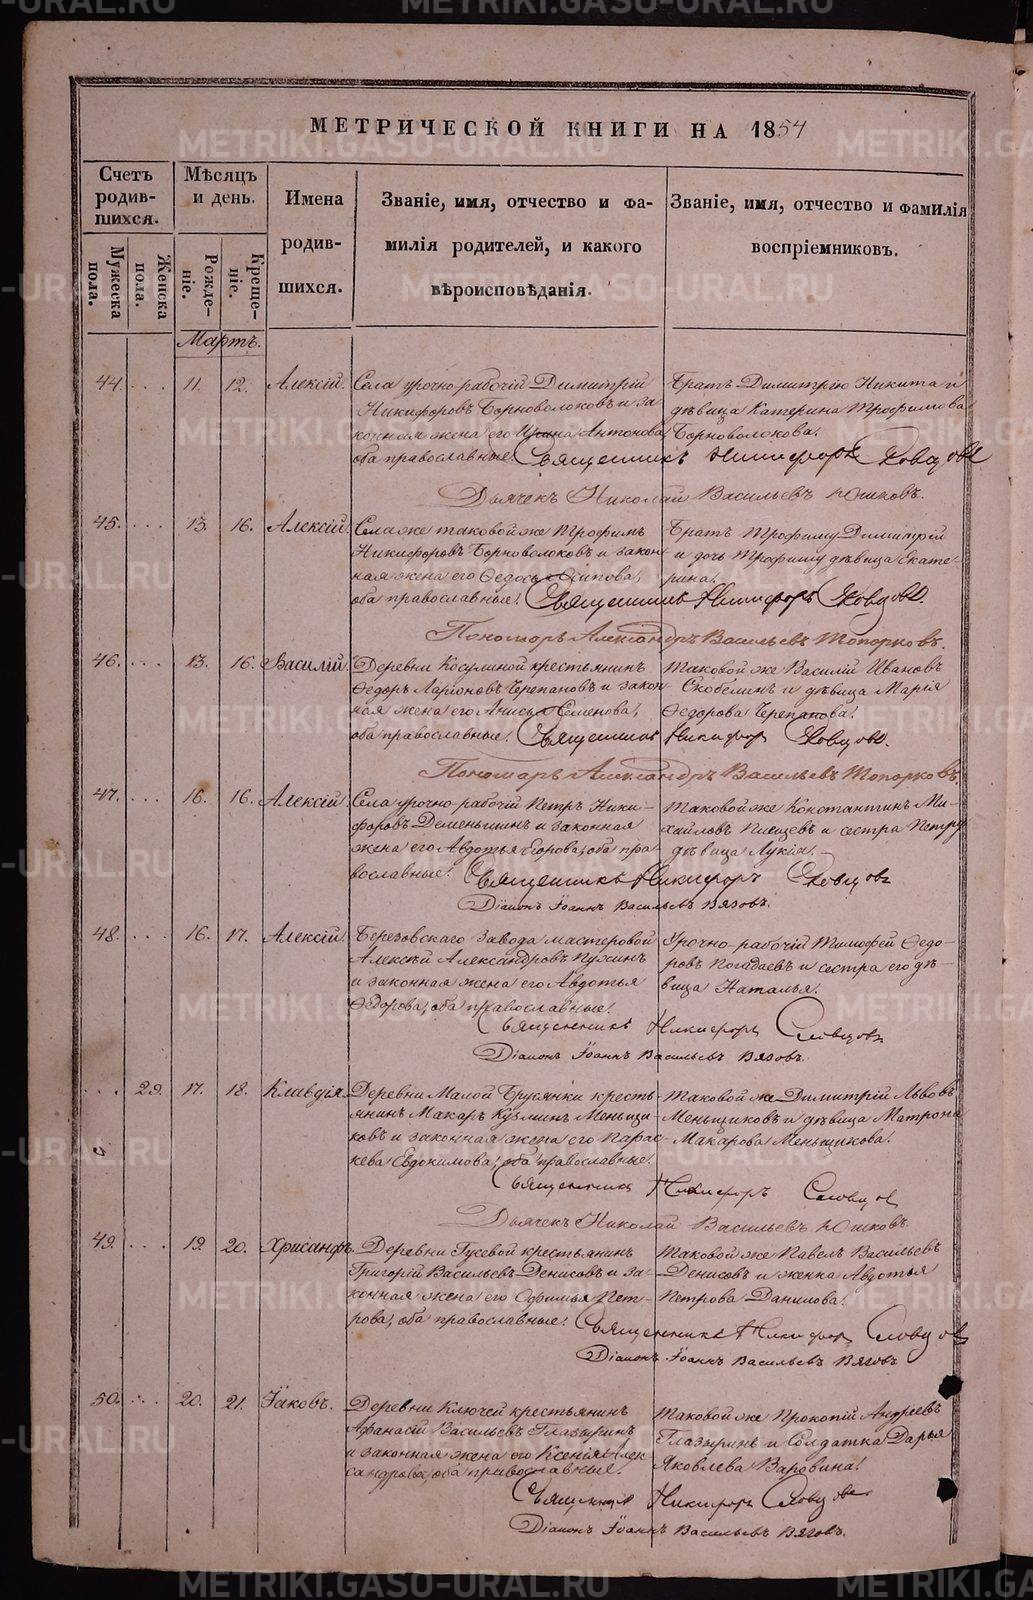 МЕТРИЧЕСКОЙ КНИГИ НА 1854
Счетъ родившихся.
Мѣсяцъ и день.
Имена родившихся.
Званіе, имя, отчество и фамилія родителей, и какого вѣроисповѣданія.
Званіе, имя, отчество и фамилія воспріемниковъ.
Мужеска пола.
Женска пола.
Рожденіе.
Крещеніе.
Мартъ.
44. 11. 12. Алексій.
Села урочно-рабочій Димитрій
Никифоровъ Борноволоковъ и за-
конная жена его Ирина Антонова,
оба православные.
Братъ Димитрію Никита и
дѣвица Катерина Трофимова
Борноволокова.
Священникъ Никифоръ Словцовъ
Дьячекъ Николай Васильевъ Юшковъ.
45. 13. 16. Алексій.
Села же таковой же Трофимъ
Никифоровъ Борноволоковъ и закон-
ная жена его Ѳедосья Осипова,
оба православные.
Братъ Трофиму Димитрій
и дочь Трофиму дѣвица Екате-
рина.
Священникъ Никифоръ Словцовъ.
Пономарь Александръ Васильевъ Топорковъ.
46. 13. 16. Василій.
Деревни Косулиной крестьянинъ
Ѳедоръ Ларіоновъ Черепановъ и закон-
ная жена его Анисья Семенова,
оба православные.
Таковой же Василій Ивановъ
Скобелинъ и дѣвица Марія
Ѳедорова Черепанова.
Священникъ Никифоръ Словцовъ.
Пономарь Александръ Васильевъ Топорковъ.
47. 16. 16. Алексій.
Села урочно-рабочій Петръ Ники-
форовъ Деменьшинъ и законная
жена его Авдотья Егорова, оба пра-
вославные.
Таковой же Константинъ Ми-
хайловъ и сестра Петру
дѣвица Лукія.
Священникъ Никифоръ Словцовъ
Діаконъ Іоаннъ Васильевъ Вязовъ.
48. 16. 17. Алексій.
Березовскаго завода мастеровой
Алексѣй Александровъ
и законная жена его Авдотья
Ѳедорова, оба православные.
Урочно-рабочій Тимофей Ѳедо-
ровъ Погадаевъ и сестра его дѣ-
вица Наталья.
Священникъ Никифоръ Словцовъ
Діаконъ Іоаннъ Васильевъ Вязовъ.
29. 17. 18. Клавдія.
Деревни Малой Брусянки кресть-
янинъ Макаръ Кузминъ Меньщи-
ковъ и законная жена его Парас-
кева Евдокимова, оба православные.
Таковой же Димитрій Львовъ
Меньщиковъ и дѣвица Матрона
Макарова Меньщикова.
Священникъ Никифоръ Словцов
Дьячекъ Николай Васильевъ Юшковъ.
49. 19. 20. Хрисанфъ.
Деревни Гусевой крестьянинъ
Григорій Васильевъ Денисовъ и за-
конная жена его Офимья Пет-
рова, оба православные.
Таковой же Павелъ Васильевъ
Денисовъ и женка Авдотья
Петрова Данилова.
Священникъ Никифоръ Словцов
Діаконъ Іоаннъ Васильевъ Вязовъ
50. 20. 21. Іаковъ.
Деревни Ключей крестьянинъ
Афанасій Васильевъ Глазыринъ
и законная жена его Ксенія Алек-
сандрова, оба православные.
Таковой же Прокопій Андреевъ
Глазыринъ и Солдатка Дарья
Яковлева Варовина.
Священникъ Никифоръ Словцовъ
Діаконъ Іоаннъ Васильевъ Вязовъ.
METRIKI.GASO-URAL.RU